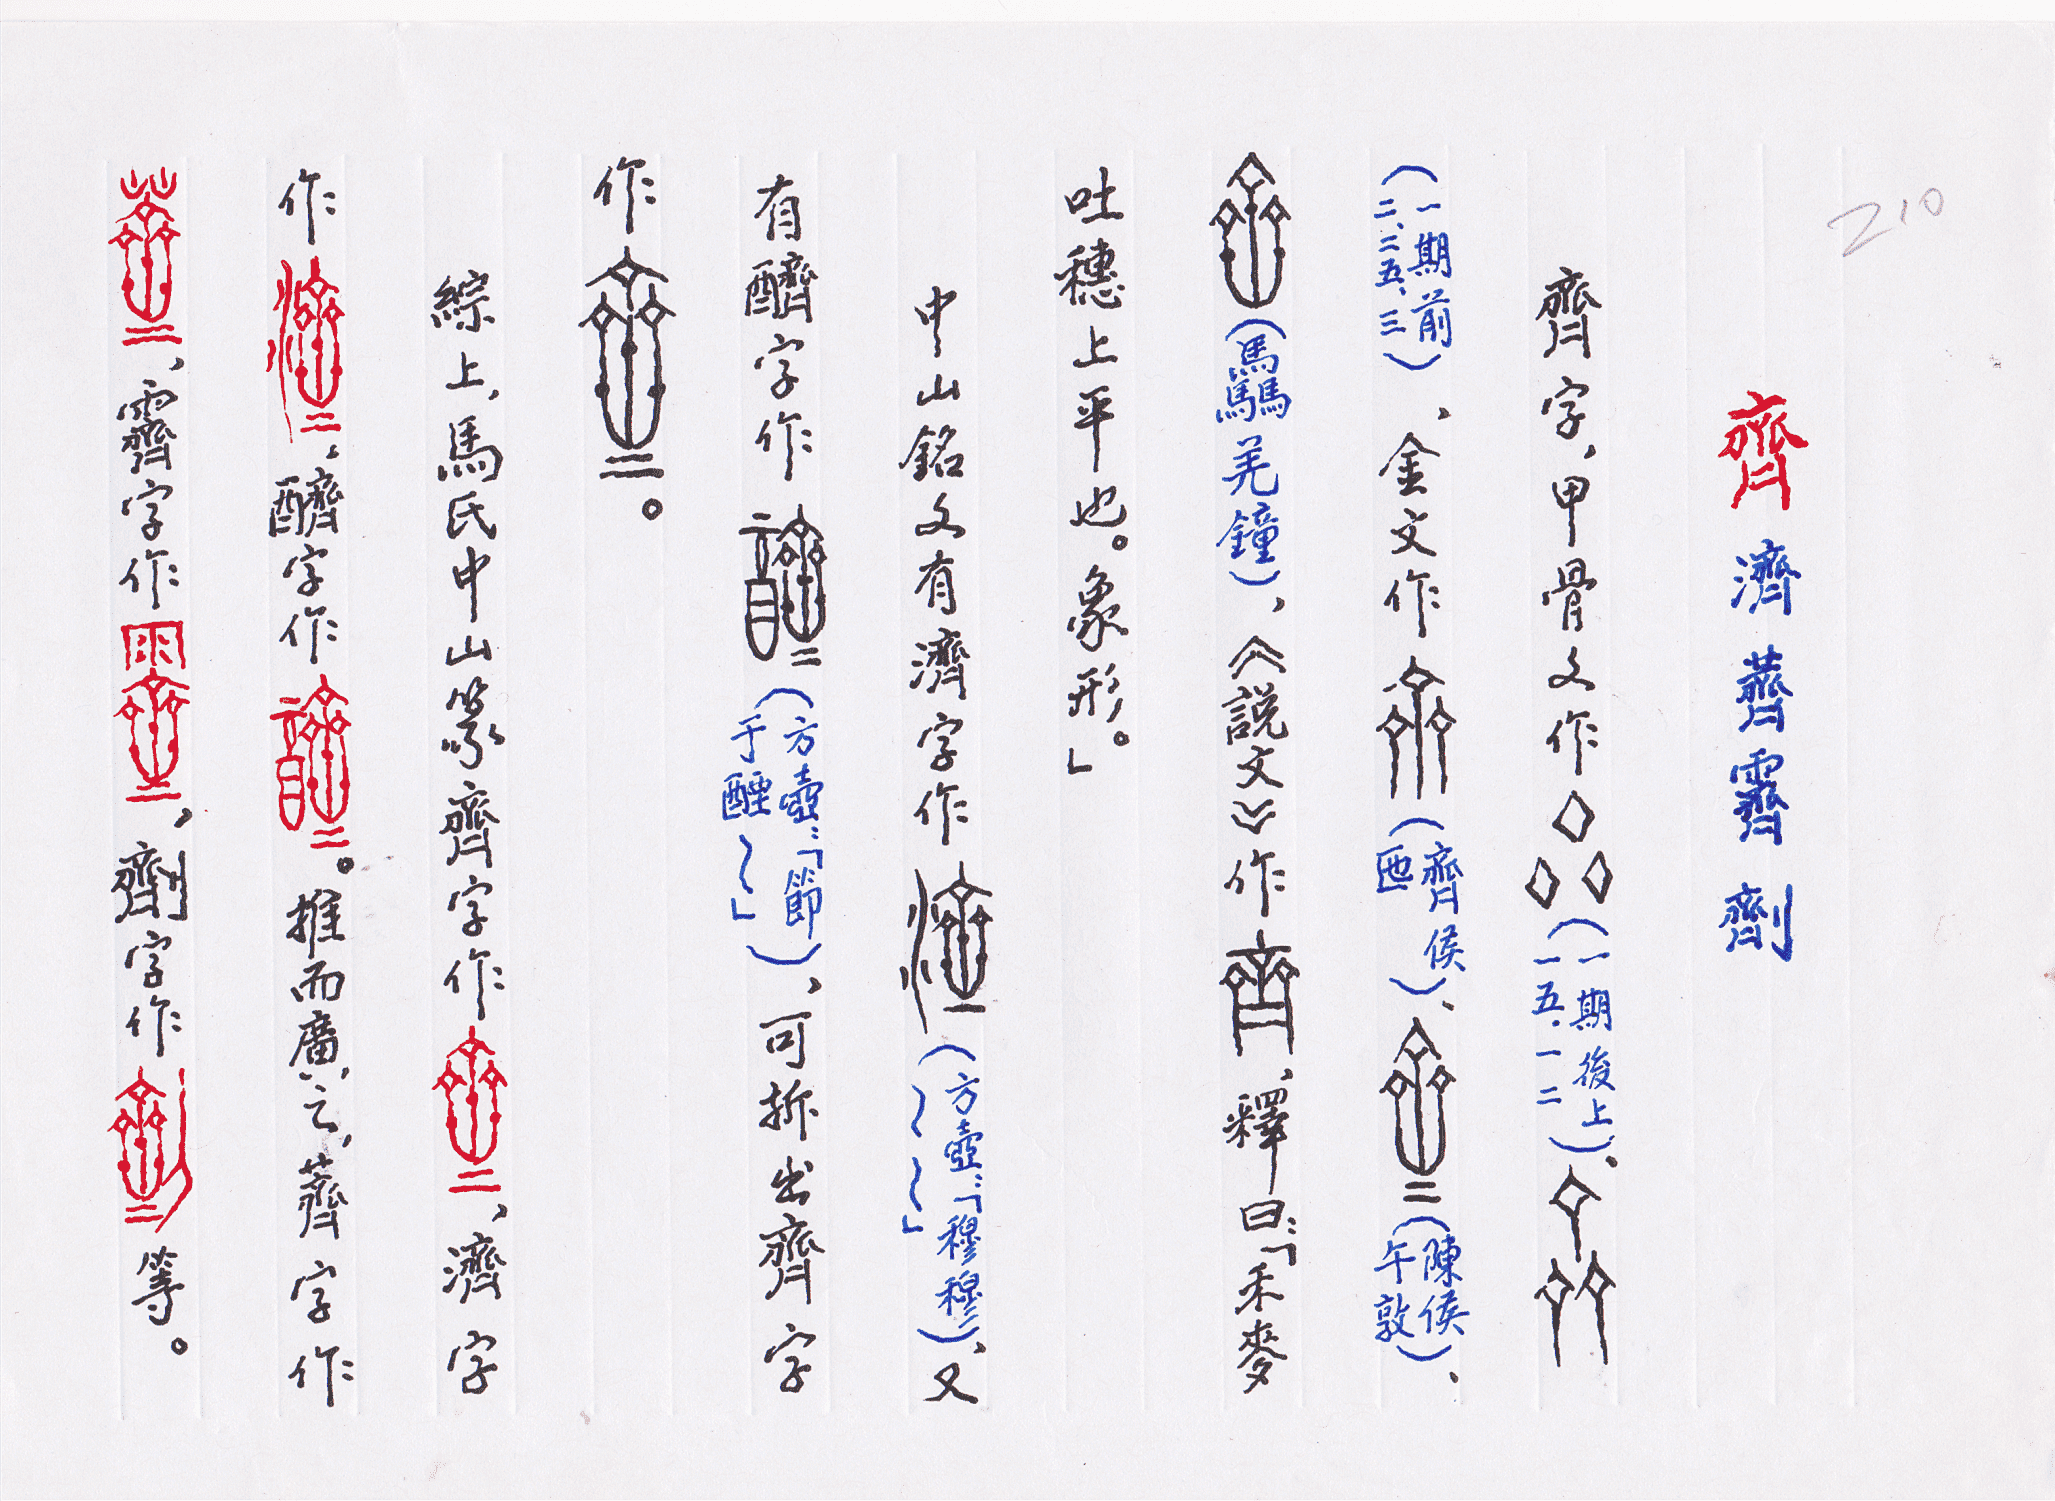 210
齊 濟 薺 霽 劑
齊字,甲骨文作(一期後上一五.一二)、
(一期前二、二五、三)、金文作(齊侯匜)、(陳侯午敦)、
(驫羌鐘)、《說文》作,釋曰:「禾麥
吐穗上平也。象形。」
中山銘文有濟字作(方壺:「穆穆〜〜」)、又
有醨字作(方壺:「節于醨〜」)、可拆出齊字
作。
綜上,馬氏中山篆齊字作,濟字
作,字作。推而廣之,薺字作
,霽字作,劑字作等。